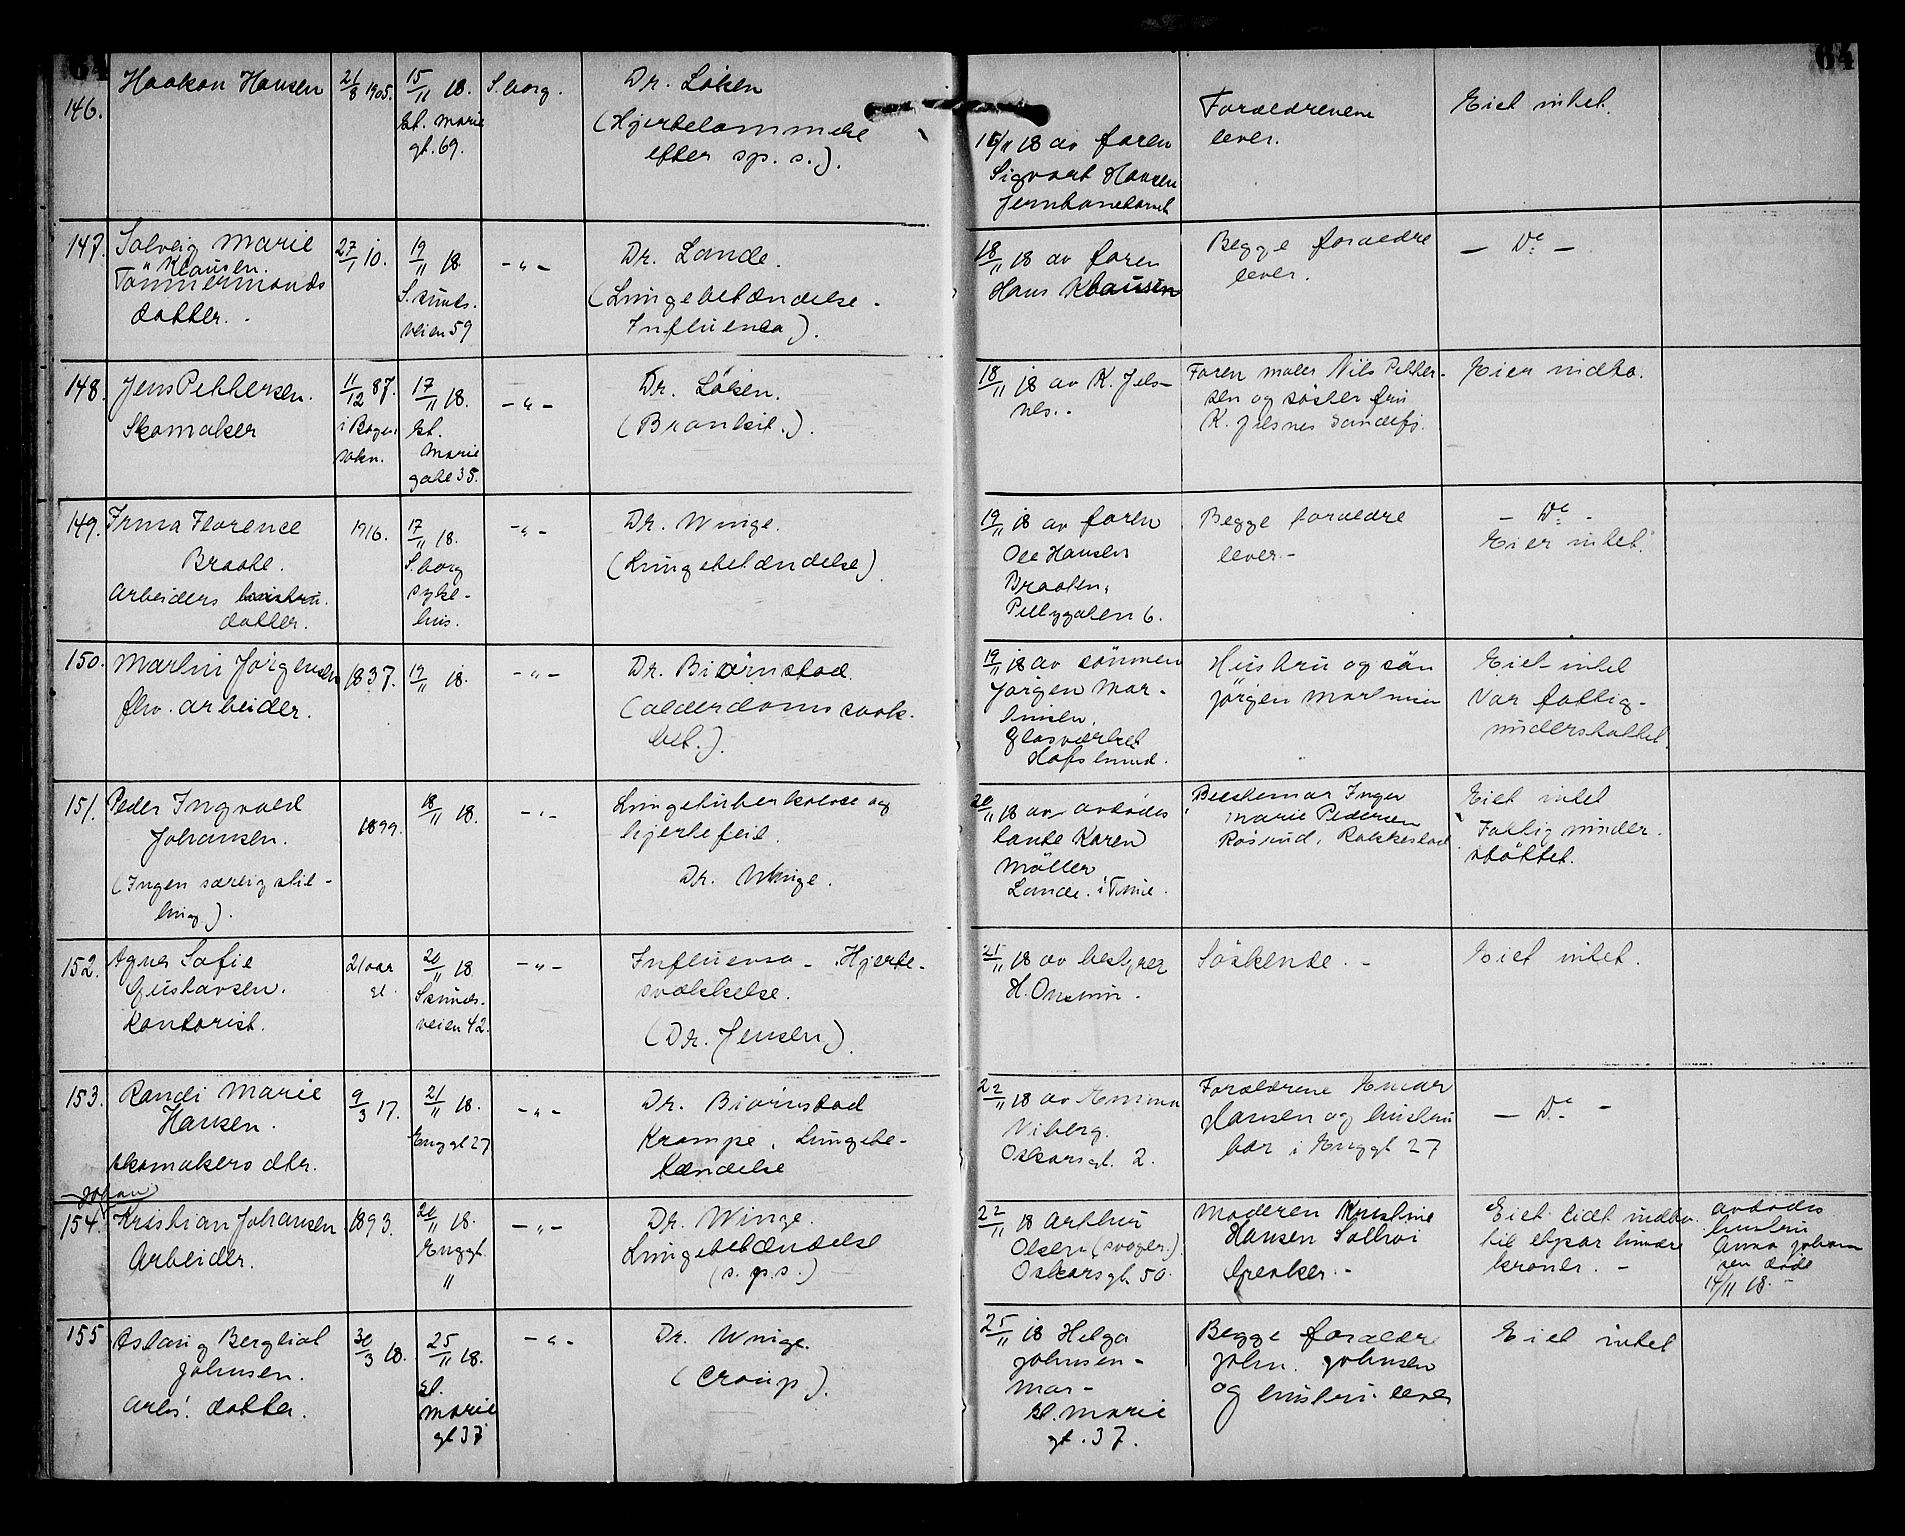 64
64
146.
Haakon Hansen
21/8 1905.
15/11 18.
St. Marie
gt. 69.
S.borg.
Dr. Löken
(Hjertelammelse
efter sp. s.).
15/11 18 av faren
Sigvart Hansen
Jernbanetomt
Forældrenene
lever.
Eiet intet.
147.
Solveig Marie
Klausen.
Tömmermands
datter.
27/1 10.
19/11 18
S.sunds.
veien 59
- " -
Dr. Lande.
(Lungebetændelse -
Influensa).
18/11 18 av faren
Hans Klausen
Begge forældre
lever.
- Do -
148.
Jens Pettersen.
Skomaker
11/12 87.
i Roger
sokn.
17/11 18.
St.
Marie
gate 35.
- " -
Dr. Löken.
(Bronkit.).
18/11 18 av K. Jels-
nes.
Faren maler Nils Petter-
sen og söster fru
K. Jelsnes Sandefj.
Eier indbo.
149.
Irma Florence
Braate.
Arbeiders
datter.
1916.
17/11 18.
S.borg
syke-
hus.
- " -
Dr. Winge.
(Lungebetændelse)
19/11 18 av faren
Ole Hansen
Braaten,
Pellygaten 6.
Begge forældre
lever -
- Do -
Eier intet.
150.
Martin Jörgensen
fhv. arbeider.
1837.
19/11 18.
- " -
Dr. Biörnstad.
(alderdomssvak-
het.).
19/11 18 av sönnen
Jörgen Mar-
tinsen.
Glasværket
Hafslund.
Hustru og sön
Jörgen Martinsen
Eiet intet
Var fattig-
understöttet.
151.
Peder Ingvald
Johansen.
(Ingen særlig stil-
ling).
1899.
18/11 18.
- " -
Lungetuberkulose og
hjertefeil.
Dr. Winge.
20/11 18 av avdödes
tante Karen
Möller
Lande. i Tune.
Bestemor Inger
Marie Pedersen
Röstad, Rakkestad
Eiet intet
Fattigunder-
stöttet.
152.
Agnes Sofie
Gustavsen.
Kontorist.
21 aar
gl.
20/11 18
S.sunds-
veien 42.
- " -
Influensa - Hjerte-
svækkelse.
(Dr. Jensen)
21/11 18 av bestyrer
H. Onsum -
Söskende. -
Eiet intet.
153.
Randi Marie
Hansen.
skomakers dtr.
9/3 17.
21/11 18.
Enggt 27
- " -
Dr. Biörnstad
Krampe, Lungebe-
tændelse
22/11 18 av Emma
Viberg.
Oskarsgt. 2.
Forældrene Einar
Hansen og hustru
bor i Enggt 27
- Do -
154.
Johan
Kristian Johansen
Arbeider.
1893.
20/11 18.
Enggt.
11
- " -
Dr. Winge.
Lungebetændelse
(s. p. s.)
22/11 18 Arthur
Olsen (svoger.)
Oskarsgt. 50.
Moderen Kristine
Hansen Solhoi
Greaker. -
Eiet lidt indbo
til et par hundre
kroner. -
avdödes
hustru
Anna Johan
sen döde
14/11 18. -
155
Aslaug Bergliot
Johnsen.
arb. datter.
30/3 18.
25/11 18.
St.
Marie
gt 37
- " -
Dr. Winge.
(Croup).
25/11 18 Helga
Johnsen -
mor -
St. Marie
gt. 37.
Begge forældre
John. Johnsen
og hustru lever
Eiet intet